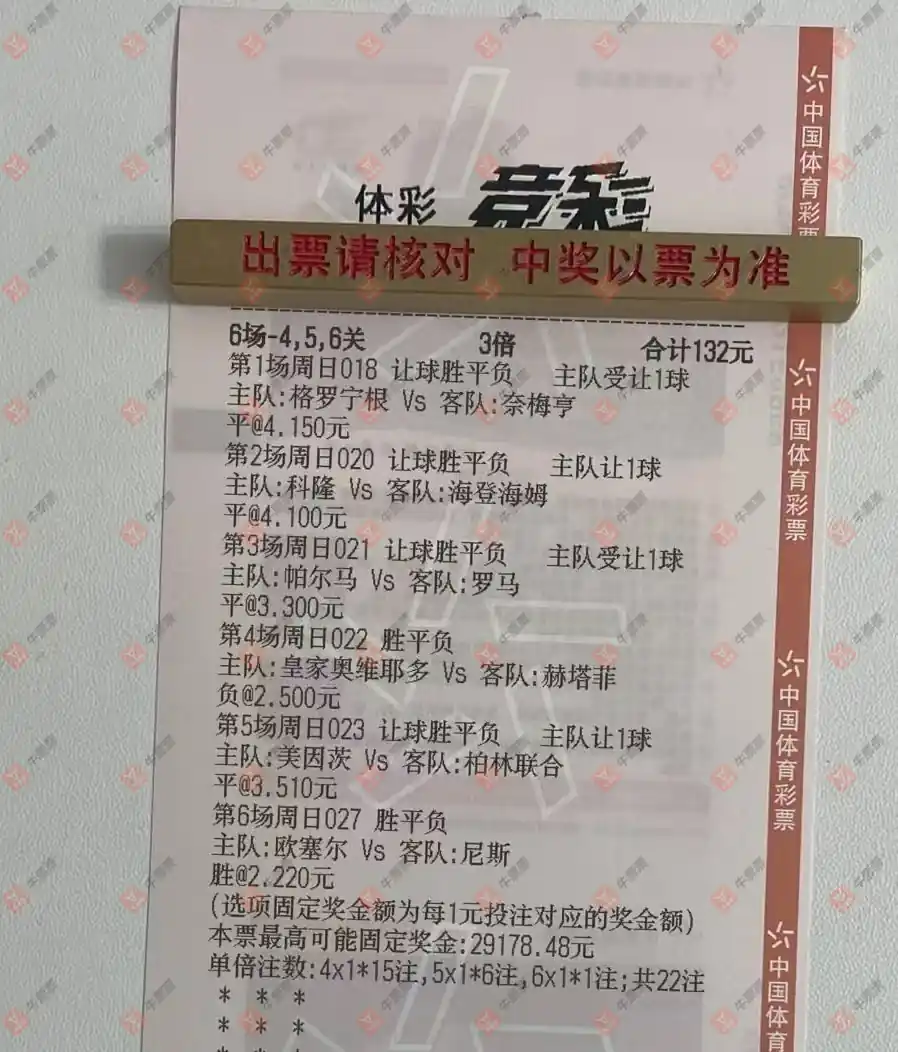 体彩 竞彩
出票请核对 中奖以票为准
6场-4,5,6关 3倍 合计132元
第1场周日018 让球胜平负 主队受让1球
主队:格罗宁根 Vs 客队:奈梅亨
平@4.150元
第2场周日020 让球胜平负 主队让1球
主队:科隆 Vs 客队:海登海姆
平@4.100元
第3场周日021 让球胜平负 主队受让1球
主队:帕尔马 Vs 客队:罗马
平@3.300元
第4场周日022 胜平负
主队:皇家奥维耶多 Vs 客队:赫塔菲
负@2.500元
第5场周日023 让球胜平负 主队让1球
主队:美因茨 Vs 客队:柏林联合
平@3.510元
第6场周日027 胜平负
主队:欧塞尔 Vs 客队:尼斯
胜@2.220元
(选项固定奖金额为每1元投注对应的奖金额)
本票最高可能固定奖金:29178.48元
单倍注数:4x1*15注,5x1*6注,6x1*1注;共22注
* * *
* * *
中国体育彩票
中国体育彩票
中国体育彩票
中国体育